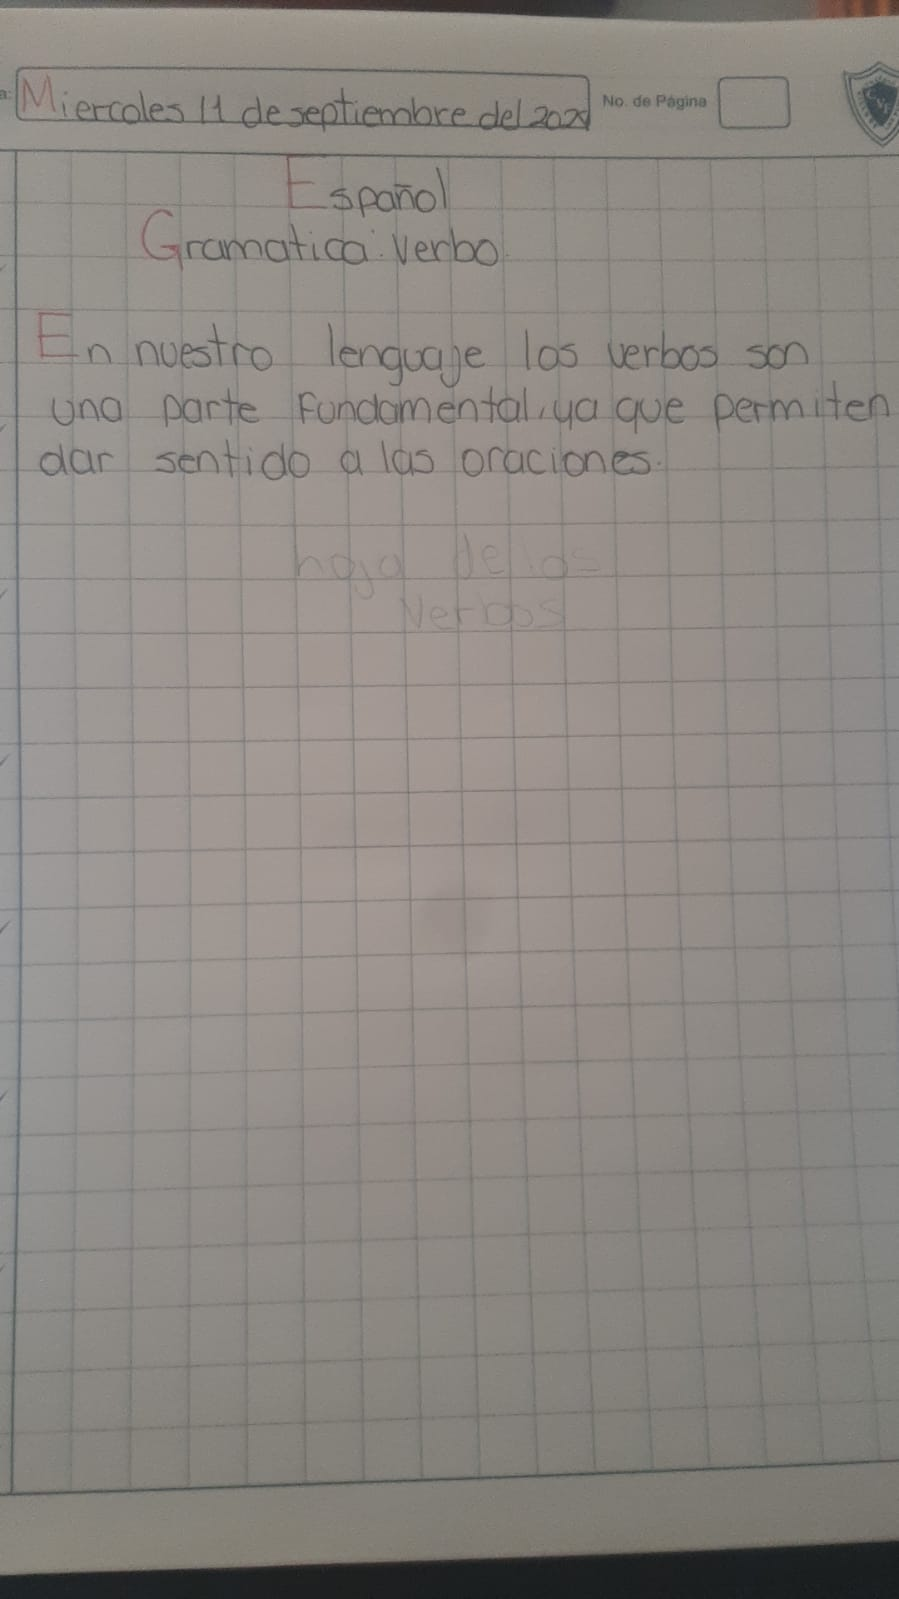 a:
Miercoles 11 de septiembre del 2024
No. de Página
Español
Gramatica: Verbo.
En nuestro lenguaje los verbos son
una parte fundamental, ya que permiten
dar sentido a las oraciones.
hoja de los
verbos